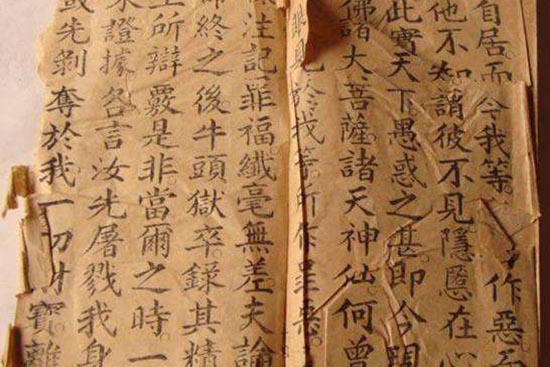 自居而今我等作惡而
他不知謂彼不見隱慝在心
此實天下愚惑之甚即今現
佛諸大菩薩諸天神仙何曾
眼見於我等所作罪惡
注記罪福纖毫無差夫論
命終之後牛頭獄卒錄其精
王所辯覈是非當爾之時一
來證據各言汝先屠戮我身
或先剝奪於我一切財寶離